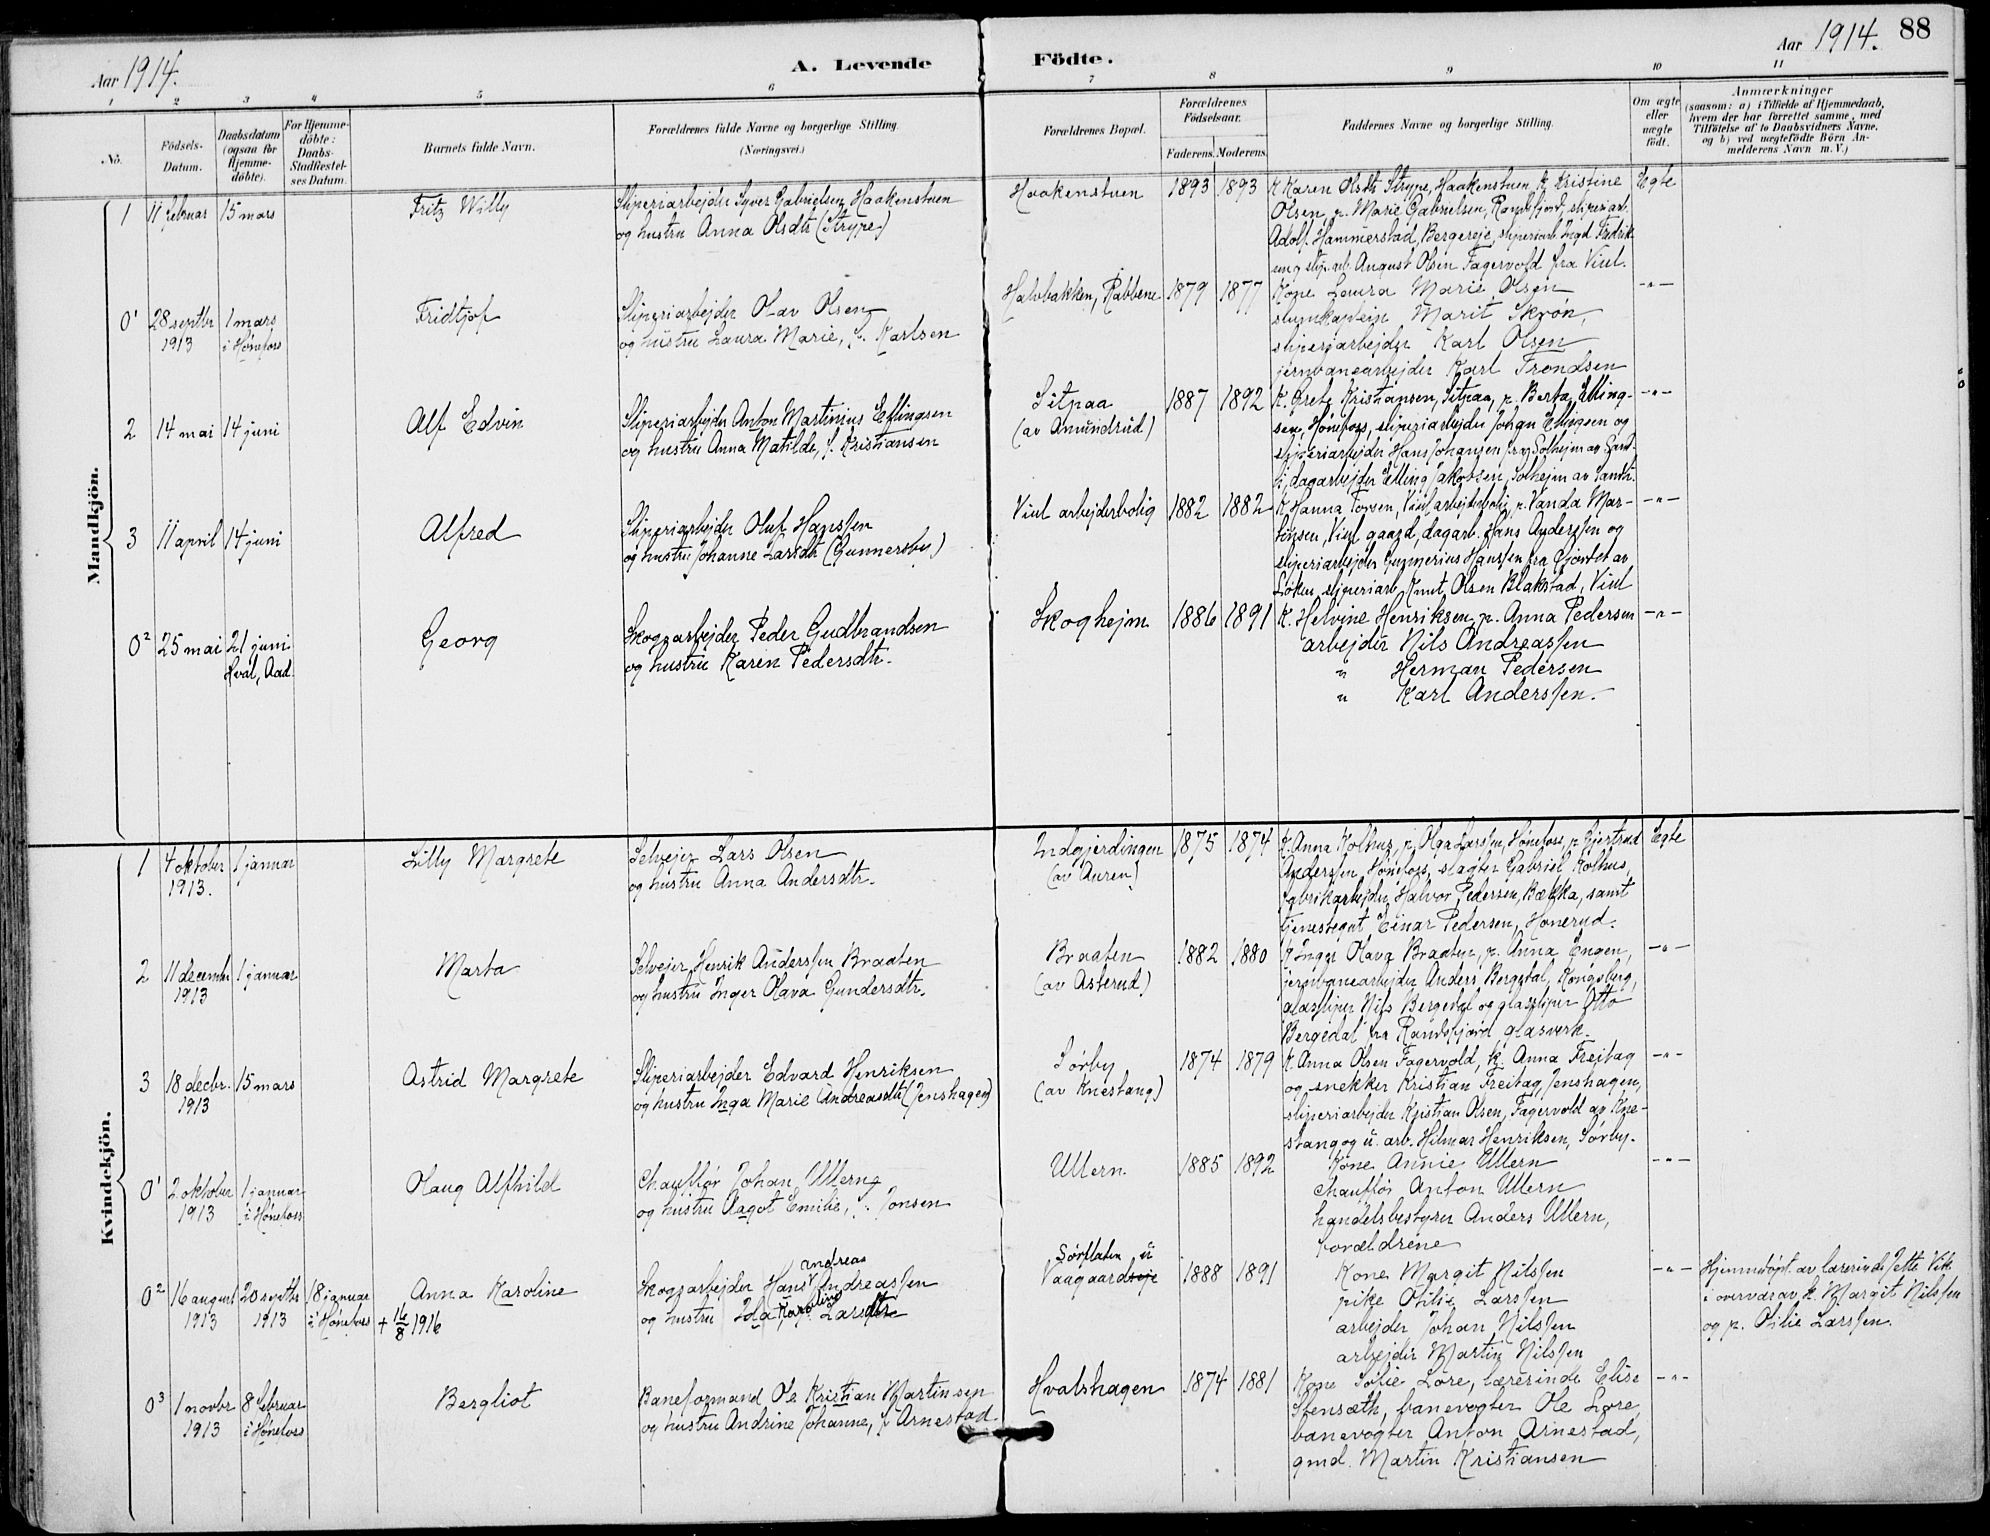 Aar 1914.
A. Levende
Födte.
Aar 1914.
88
1
2
3
4
5
6
7
8
9
10
11
No.
Födsels-
Datum.
Daabsdatum
(ogsaa for
Hjemme-
döbte).
For Hjemme-
döbte:
Daabs-
Stadfæstel-
ses Datum.
Barnets fulde Navn.
Forældrenes fulde Navne og borgerlige Stilling
(Næringsvei.)
Forældrenes Bopæl.
Forældrenes
Födselsaar.
Faderens.
Moderens.
Faddernes Navne og borgerlige Stilling.
Om ægte
eller
uægte
födt.
Anmærkninger
(saasom: a) i Tilfælde af Hjemmedaab,
hvem der har forrettet samme, med
Tilföielse af to Daabsvidners Navne,
og b) ved uægtefödte Börn An-
melderens Navn m. V.)
Mandkjön.
1
11 februar
15 mars
Fritz Willy
Sliperiarbejder Syver Gabrielsen, Haakenstuen
og hustru Anna Olsdtr (Strype)
Haakenstuen
1893
1893
K Karen Olsdtr Strype, Haakenstuen, K. Kristine
Olsen, p. Marie Gabrielsen, Randsfjord, sliperiarb.
Adolf Hammerstad, Bergereje, sliperiarb. Ingd Fredrik-
sen og slip.arb. August Olsen Fagervold fra Viul.
Egte
0¹
28 septbr
1913
1 mars
i Hønefoss
Fridtjof
Sliperiarbejder Olav Olsen
og hustru Laura Marie, f. Karlsen
Halvbakken, Rabbene
1879
1877
Kone Laura Marie Olsen
Marit Skrøn,
sliperiarbejder Karl Olsen
jernbanearbejder Karl Trondsen
-"-
2
14 mai
14 juni
Alf Edvin
Sliperiarbejder Anton Martinius Ellingsen
og hustru Anna Matilde, f. Kristiansen
Sitpaa
(av Amundrud)
1887
1892
K. Grete Kristiansen, Sitpaa, p. Berta Elling-
sen, Hønefoss, sliperiarbejder Johan Ellingsen og
sliperiarbejder Hans Johansen fra Solhejm av Sand-
dagarbejder Elling Jakobsen, Solhejm av Sandtr.
-"-
3
11 april
14 juni
Alfred
Sliperiarbejder Oluf Hanssen
og hustru Johanne Larsdtr (Gunnersby)
Viul arbejderbolig
1882
1882
K Hanna Torsen, Viul arbejderbolig, p. Vanda Mar-
tinsen, Viul gaard, dagarb. Hans Anderssen og
sliperiarbejder Gunnerius Hanssen fra Hjertet av
Løken, sliperiarb Knut Olsen Blakstad, Viul
-"-
0²
25 mai
21 juni
Hval, Aad.
Georg
Skogsarbejder Peder Gudbrandsen
og hustru Karen Pedersdtr.
Skoghejm
1886
1891
K. Helvine Henriksen, p. Anna Pedersen
arbejder Nils Andreassen
" Herman Pedersen
" Karl Anderssen.
-"-
Kvindekjön.
1
4 oktober
1913.
1 januar
Lilly Margrete
Selvejer Lars Olsen
og hustru Anna Andersdtr.
Indgjerdingen
(av Auren)
1875
1874
K. Anna Kolhus, p. Olga Larssen, Hønefoss, p. Gjertrud
Anderssen, Hønefoss, slagter Gabriel Kolhus,
fabrikarbejder Halvor Pedersen, Bækka, samt
tjenestegut Einar Pedersen, Honerud.
Egte
2
11 decembr
1913
1 januar
Marta
Selvejer Henrik Anderssen Braaten
og hustru Inger Olava Gundersdtr.
Braaten
(av Asterud)
1882
1880
K Inger Olava Braaten, p. Anna Engen,
jernbanearbejder Anders Bergedal, Kongsberg,
glassliper Nils Bergedal og glassliper Otto
Bergedal fra Randsfjord glasverk.
-"-
3
18 decbr.
1913
15 mars
Astrid Margrete
Sliperiarbejder Edvard Henriksen
og hustru Inga Marie Andreasdtr (Jenshagen)
Sørby
(av Knestang)
1874
1879
K. Anna Olsen Fagervold, K. Anna Freitag
og snekker Kristian Freitag, Jenshagen,
sliperiarbejder Kristian Olsen, Fagervold av Kne-
stang og u. arb. Hilmar Henriksen, Sørby.
-"-
0¹
2 oktober
1913
1 januar
i Hønefoss
Olaug Alfhild
Chauffør Johan Ullern
og hustru Aagot Emilie, f. Jonsen
Ullern
1885
1892
Kone Annie Ullern
chauffør Anton Ullern
handelsbestyrer Anders Ullern,
forældrene
-"-
0²
16 august
1913
20 septbr
1913
18 januar
i Hønefoss
Anna Karoline
+ 16/8 1916
Andreas
Skogsarbejder Hans Andreassen
og hustru Ida Karoline Larsdtr
Sørflaten u
Vaagaardseje
1888
1891
Kone Margit Nilssen
pike Otilie Larssen
arbejder Johan Nilssen
arbejder Martin Nilssen
-"-
Hjemmdøpt av lærerinde Jette Vik
i overvær av k. Margit Nilssen
og p. Otilie Larssen.
0³
1 novbr
1913
8 februar
i Hønefoss
Bergliot
Baneformand Ole Kristian Martinsen
og hustru Andrine Johanne, f. Arnestad
Hvalshagen
1874
1881
Kone Sofie Lore, lærerinde Elise
Stensæth, banevogter Ole Lore,
banevogter Anton Arnestad,
gmd. Martin Kristiansen
-"-